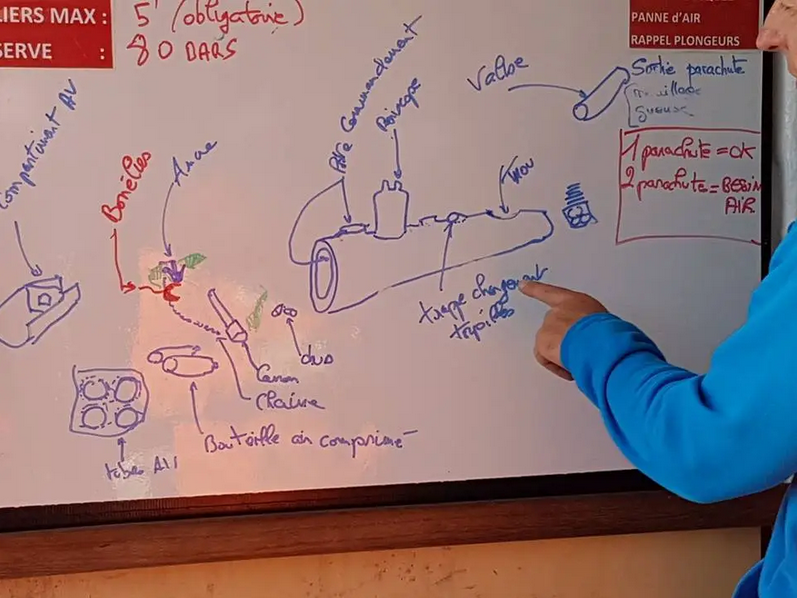 IERS MAX : 5' (obligatoire)
SERVE : 80 BARS
PANNE d'AIR
RAPPEL PLONGEURS
Compartiment AV
Bonelles
Ancre
Commandement
Périscope
Valbe
Sortie parachute
gueuse
1 parachute = OK
2 parachute = BESOIN
AIR
trappe chargement
torpilles
obus
Canon
Chaine
Bouteille air comprimé
tubes